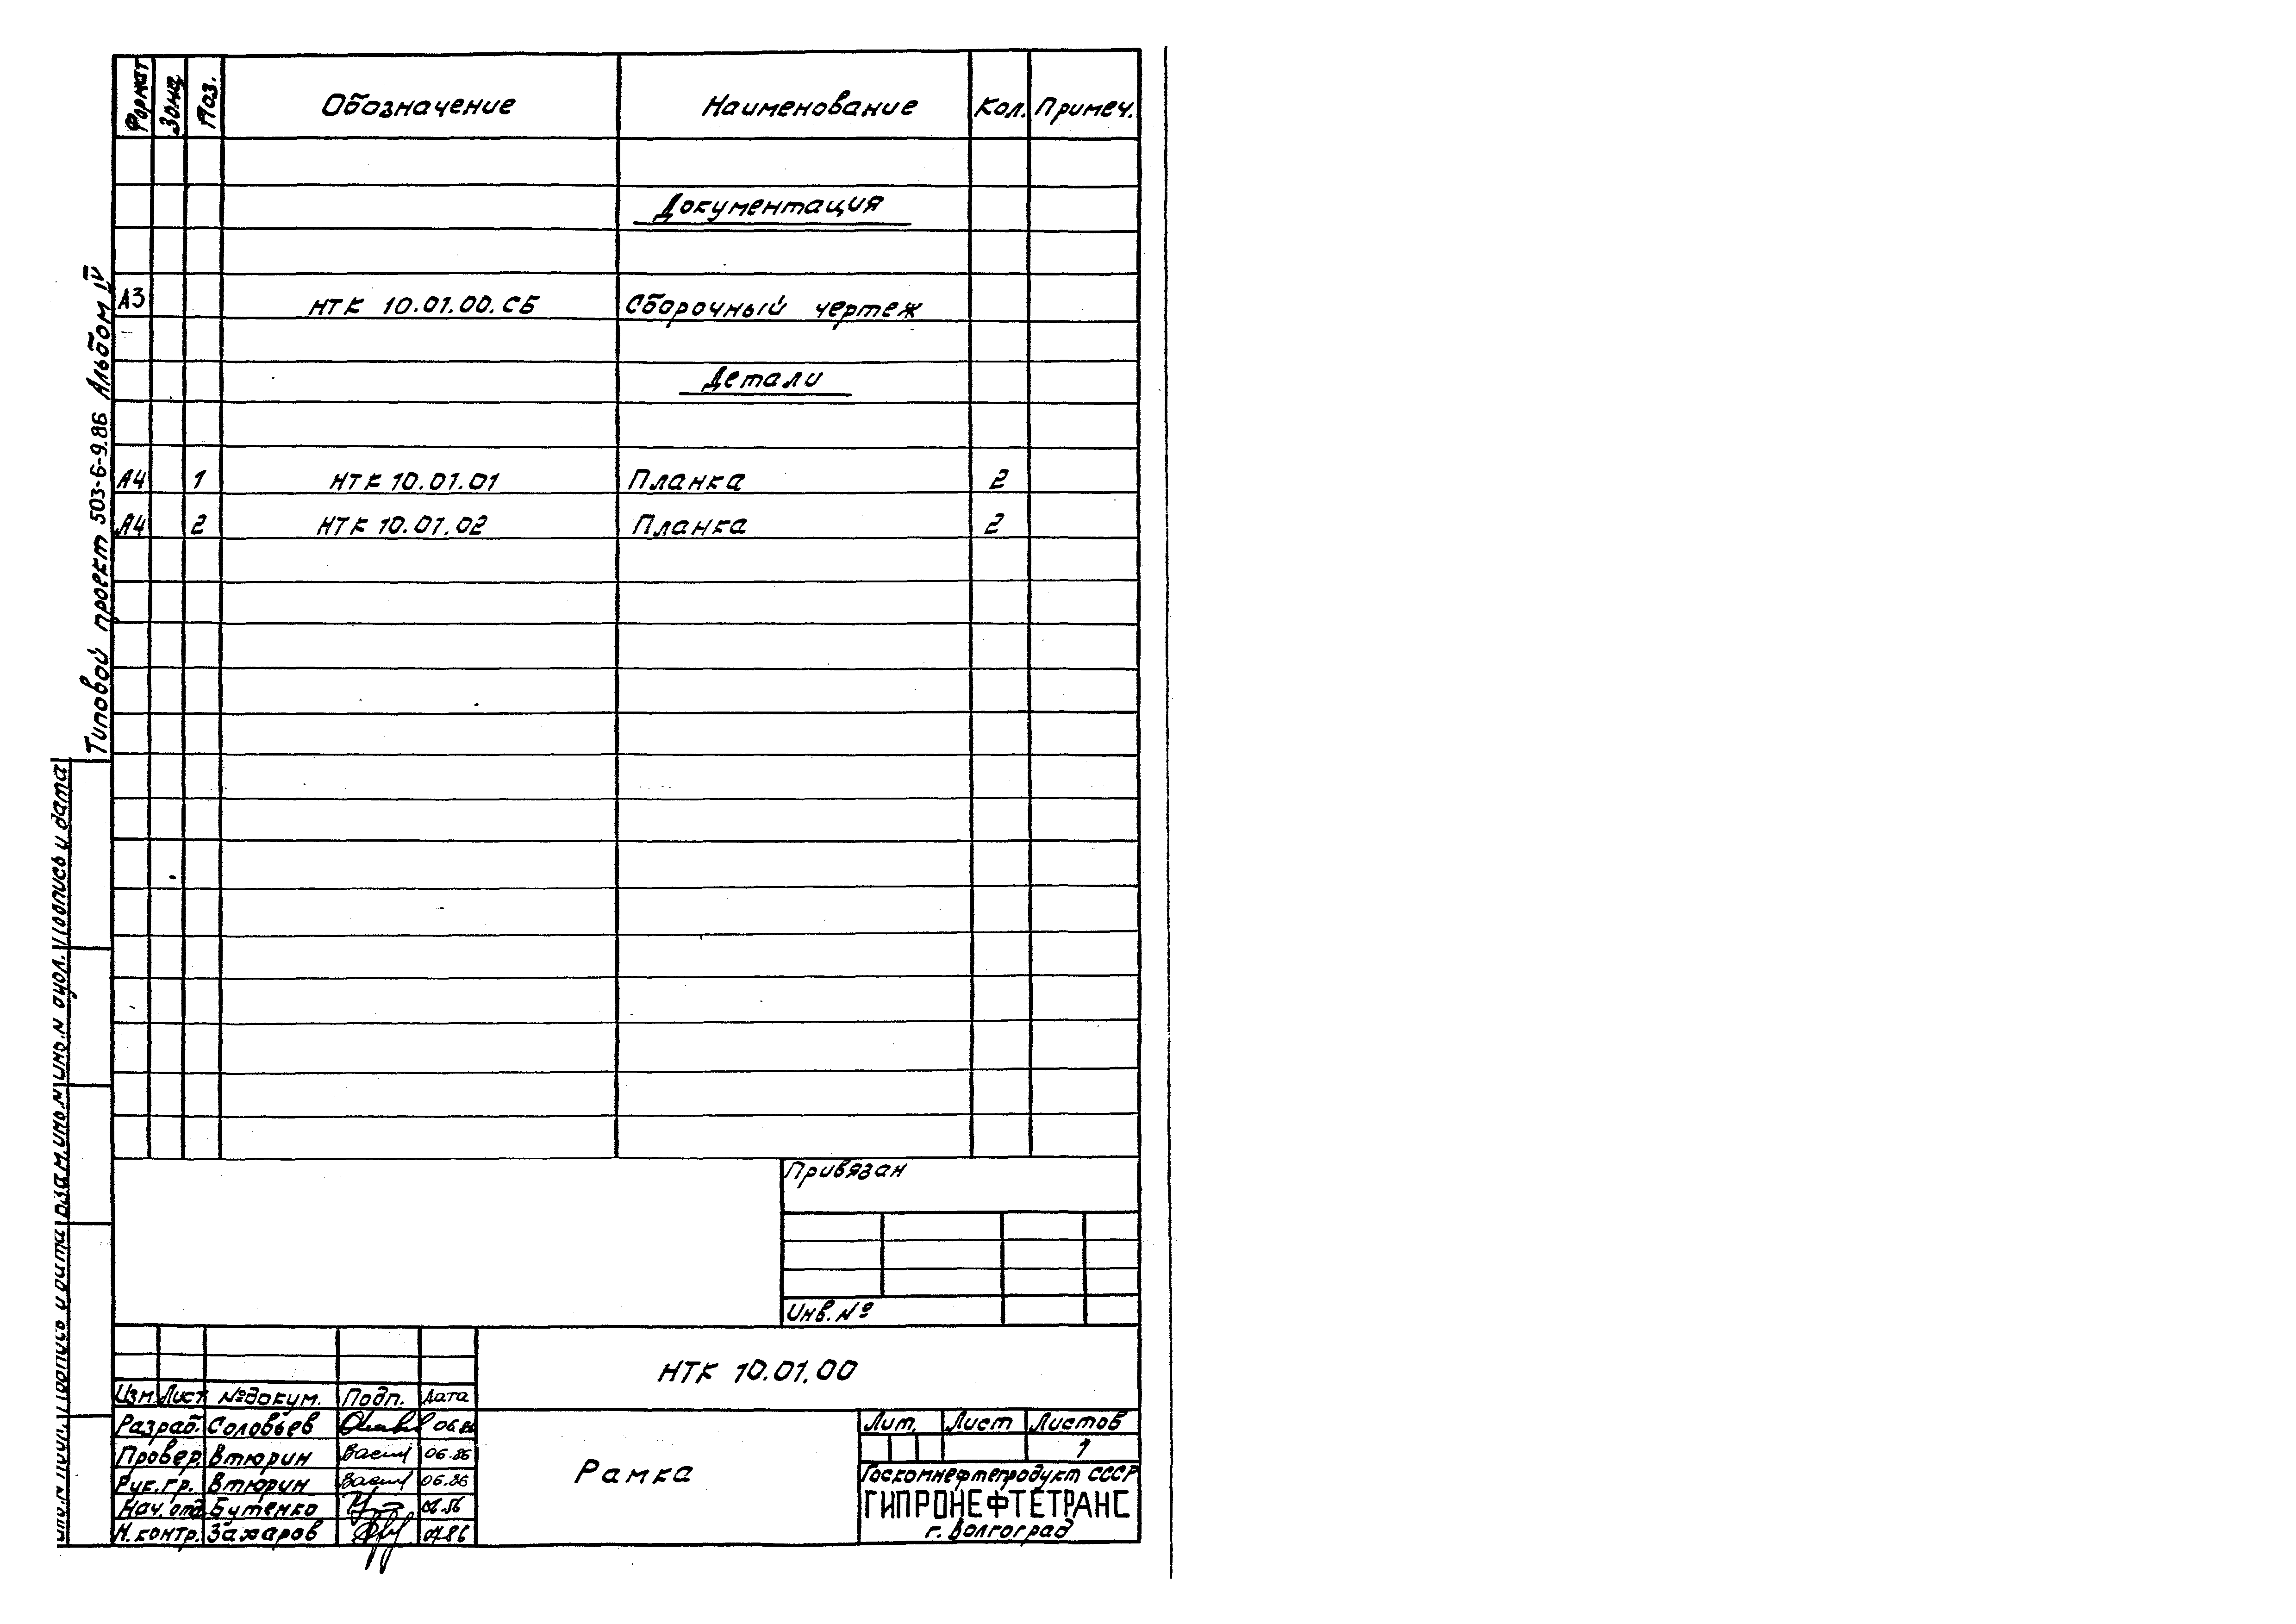 Формат Зона Поз. Обозначение Наименование Кол. Примеч.
Документация
А3 НТК 10.01.00.СБ Сборочный чертеж
Детали
А4 1 НТК 10.01.01 Планка 2
А4 2 НТК 10.01.02 Планка 2
Типовой проект 503-6-9.86 Альбом IV
Подпись и дата
Инв.N дубл.
Взам.инв.N
Подпись и дата
Инв.N подл.
Привязан
Инв.№
НТК 10.01.00
Изм. Лист №докум. Подп. Дата
Разраб. Соловьев 06.86
Провер. Втюрин 06.86
Рук.гр. Втюрин 06.86
Нач.отд. Бутенко
Н.контр. Захаров
Рамка
Лит. Лист Листов
1
Госкомнефтепродукт СССР
ГИПРОНЕФТЕТРАНС
г. Волгоград